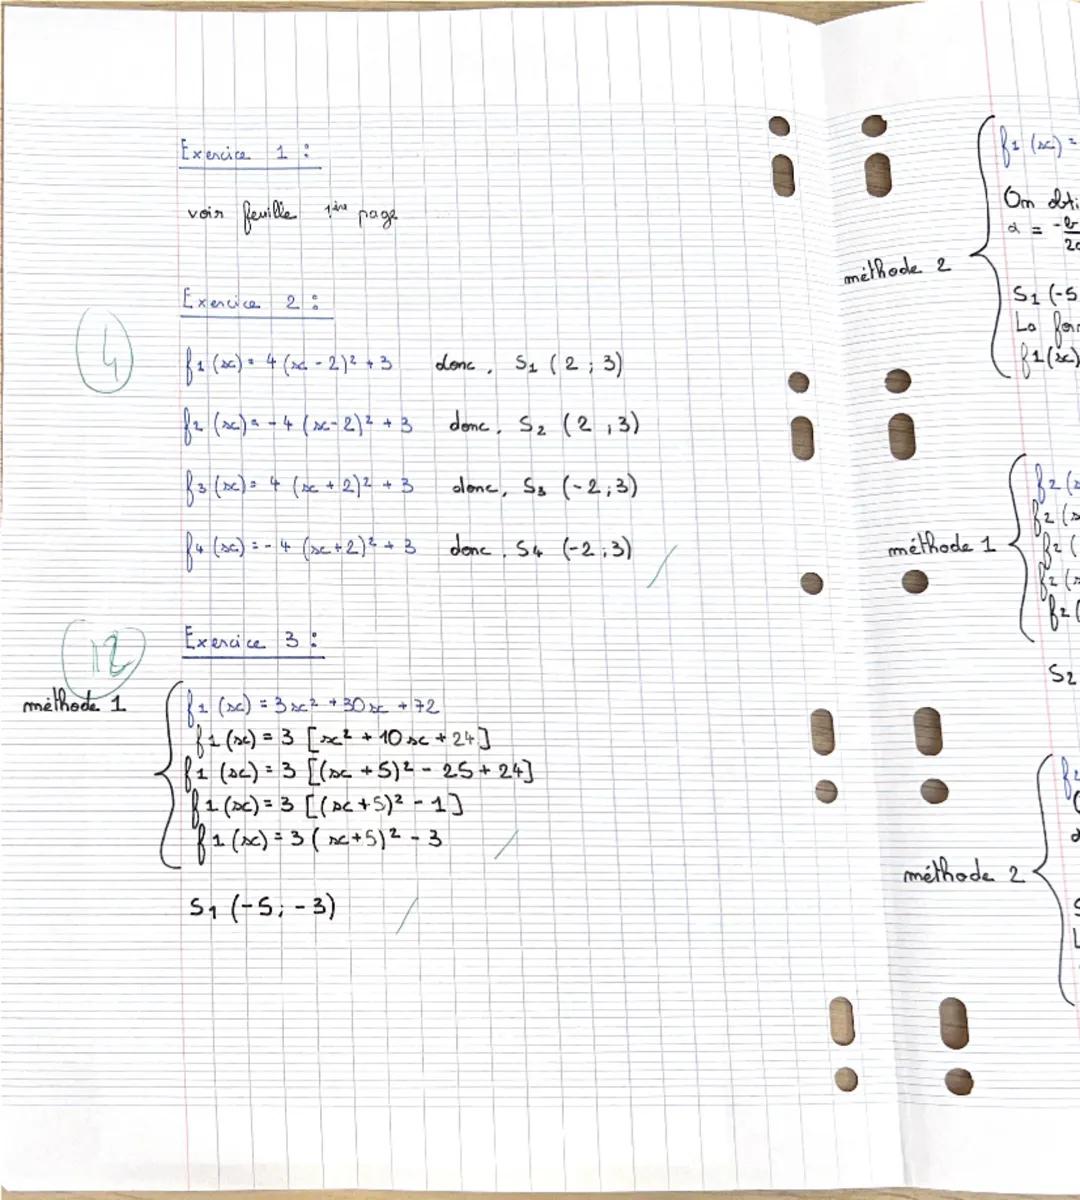 Exercice 1 :
voir feuille 1ère page
Exercice 2 :
4
f1(x) = 4(x - 2)² + 3 donc, S1 (2 ; 3)
f2(x) = - 4 (x - 2)² + 3 donc, S2 (2 ; 3)
f3(x) = 4 (x + 2)² + 3 donc, S3 (-2 ; 3)
f4(x) = - 4 (x + 2)² + 3 donc, S4 (-2 ; 3)
12
Exercice 3 :
méthode 1
f1(x) = 3x² + 30x + 72
f1(x) = 3 [x² + 10x + 24]
f1(x) = 3 [(x + 5)² - 25 + 24]
f1(x) = 3 [(x + 5)² - 1]
f1(x) = 3 (x + 5)² - 3
S1 (-5 ; -3)
méthode 2
f1(x) =
On
α = -b
S1 (-5
La
f1(x)
méthode 1
f2(
f2(
f2(
f2(
f2(
S2
méthode 2